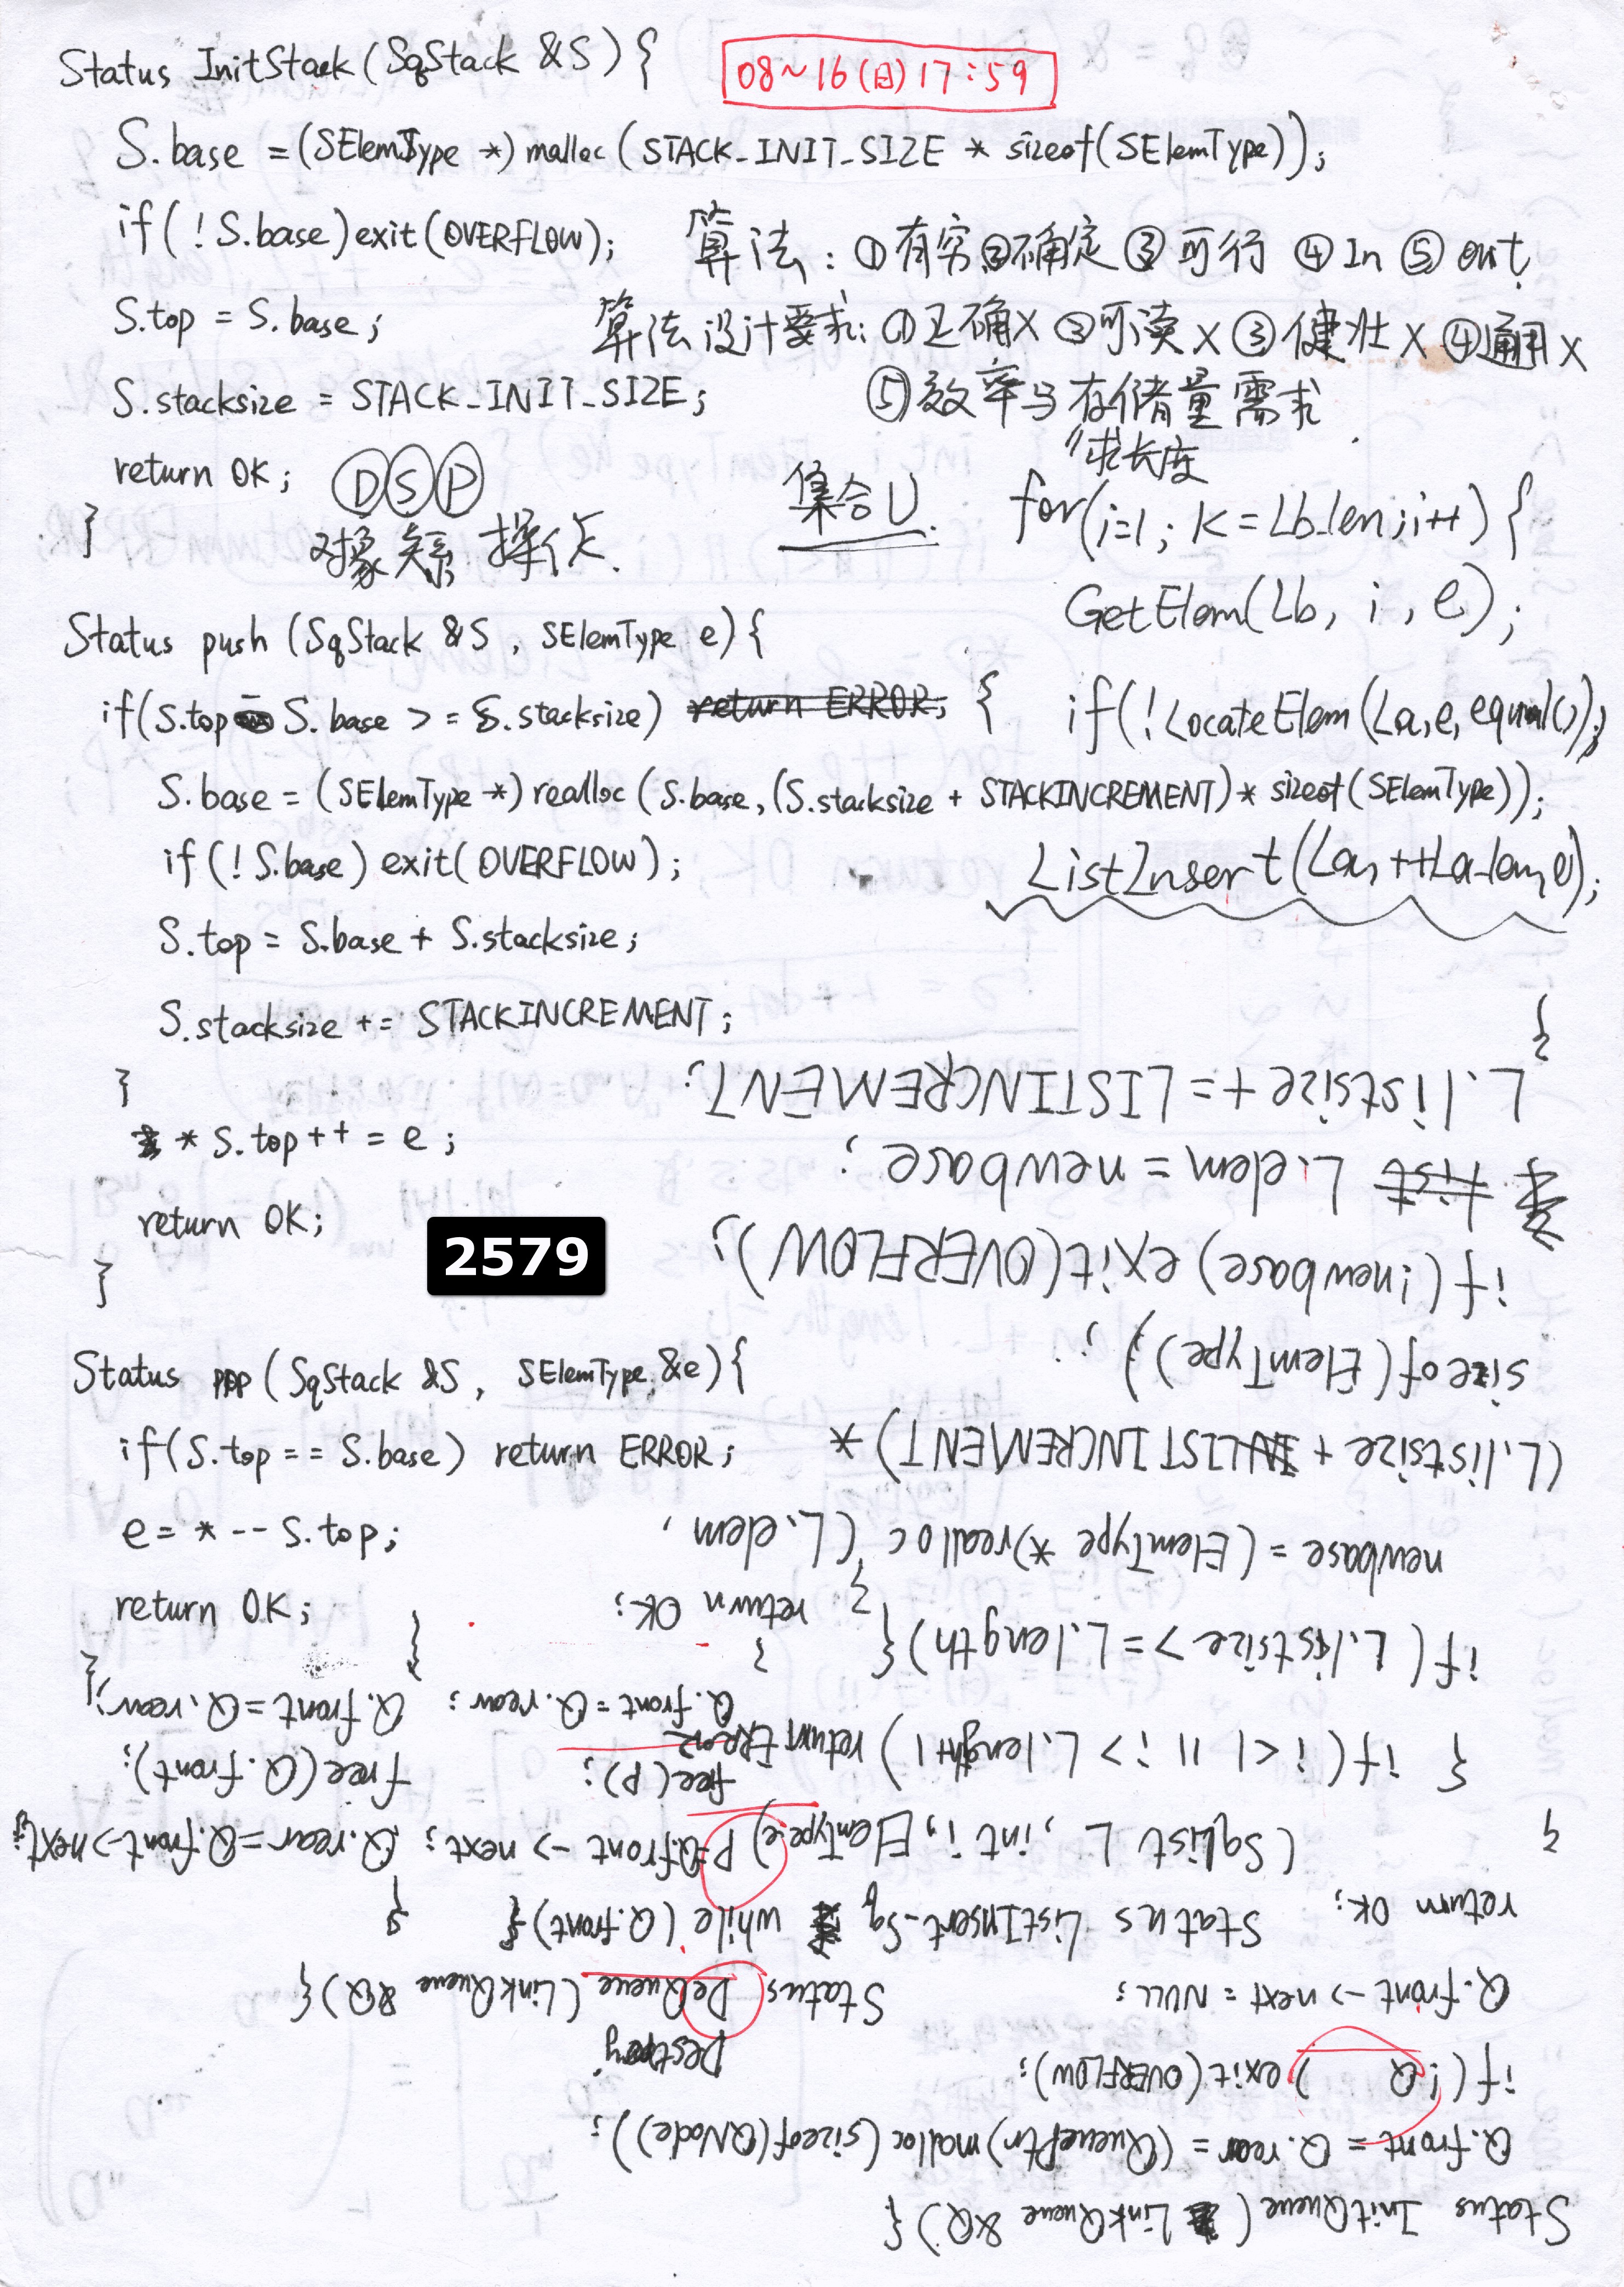 Status InitStack(SqStack &S) {
08~16(日)17:59
S.base = (SElemType *) malloc (STACK_INIT_SIZE * sizeof(SElemType));
if(!S.base)exit(OVERFLOW);
算法: ①有穷②确定③可行 ④In ⑤out.
S.top = S.base;
算法设计要求: ①正确X ②可读X ③健壮X ④通用X
S.stacksize = STACK_INIT_SIZE;
⑤效率与存储量需求
return OK;
}
DSP
对象 关系 操作.
集合U.
"求长度
for(i=1; K=Lb_len;i++) {
GetElem(Lb, i, e);
if(!LocateElem(La,e,equal());
ListInsert(La,++La_len,e);
Status push (SqStack &S, SElemType e){
if(S.top - S.base >= S.stacksize) return ERROR; {
S.base = (SElemType *) realloc (S.base, (S.stacksize + STACKINCREMENT)* sizeof(SElemType));
if(!S.base) exit(OVERFLOW);
S.top = S.base + S.stacksize;
S.stacksize += STACKINCREMENT;
}
* S.top++ = e;
return OK;
}
2579
Status pop (SqStack &S, SElemType &e){
if(S.top == S.base) return ERROR;
e = * -- S.top;
return OK;
}
Status InitQueue (LinkQueue &Q) {
Q.front = Q.rear = (QueuePtr)malloc(sizeof(QNode));
if(!Q ) exit(OVERFLOW);
Q.front -> next = NULL;
return OK;
}
Destroy
Status DeQueue (LinkQueue &Q) {
while (Q.front) {
P=Q.front -> next;
free(P);
Q.front = Q.rear;
}
return OK;
}
{
Q.rear = Q.front->next;
free(Q.front);
Q.front = Q.rear;
}
Status ListInsert_Sq
(SqList L, int i, ElemType e)
{ if(i<1 || i > L.lenght+1) return ERROR
if(L.listsize >= L.length) {
newbase = (ElemType *)realloc (L.elem,
(L.listsize + LISTINCREMENT) *
sizeof(ElemType));
if(!newbase) exit(OVERFLOW);
L.elem = newbase;
L.listsize += LISTINCREMENT;
}